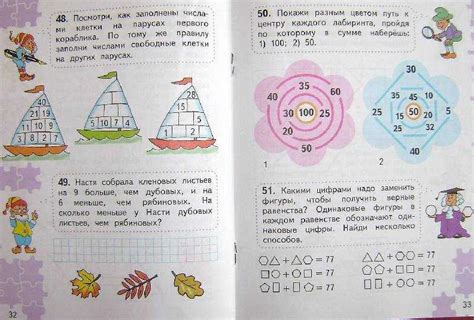 48. Посмотри, как заполнены числа-
ми клетки на парусах первого
кораблика. По тому же правилу
заполни числами свободные клетки
на других парусах.
40
21 19
11 10 9
3 8 2 7
28
15
49. Настя собрала кленовых листьев
на 9 больше, чем дубовых, и на
6 меньше, чем рябиновых. На
сколько меньше у Насти дубовых
листьев, чем рябиновых?
32
50. Покажи разным цветом путь к
центру каждого лабиринта, пройдя
по которому в сумме наберёшь:
1) 100; 2) 50.
35 60
45
40 30 100 20
25
1
30
25 35
45
40 15 50 20 5
10
2)
51. Какими цифрами надо заменить
фигуры, чтобы получить верные
равенства? Одинаковые фигуры в
каждом равенстве обозначают оди-
наковые цифры. Найди несколько
способов.
= 77 = 77
= 77 = 77
= 77 = 77
33